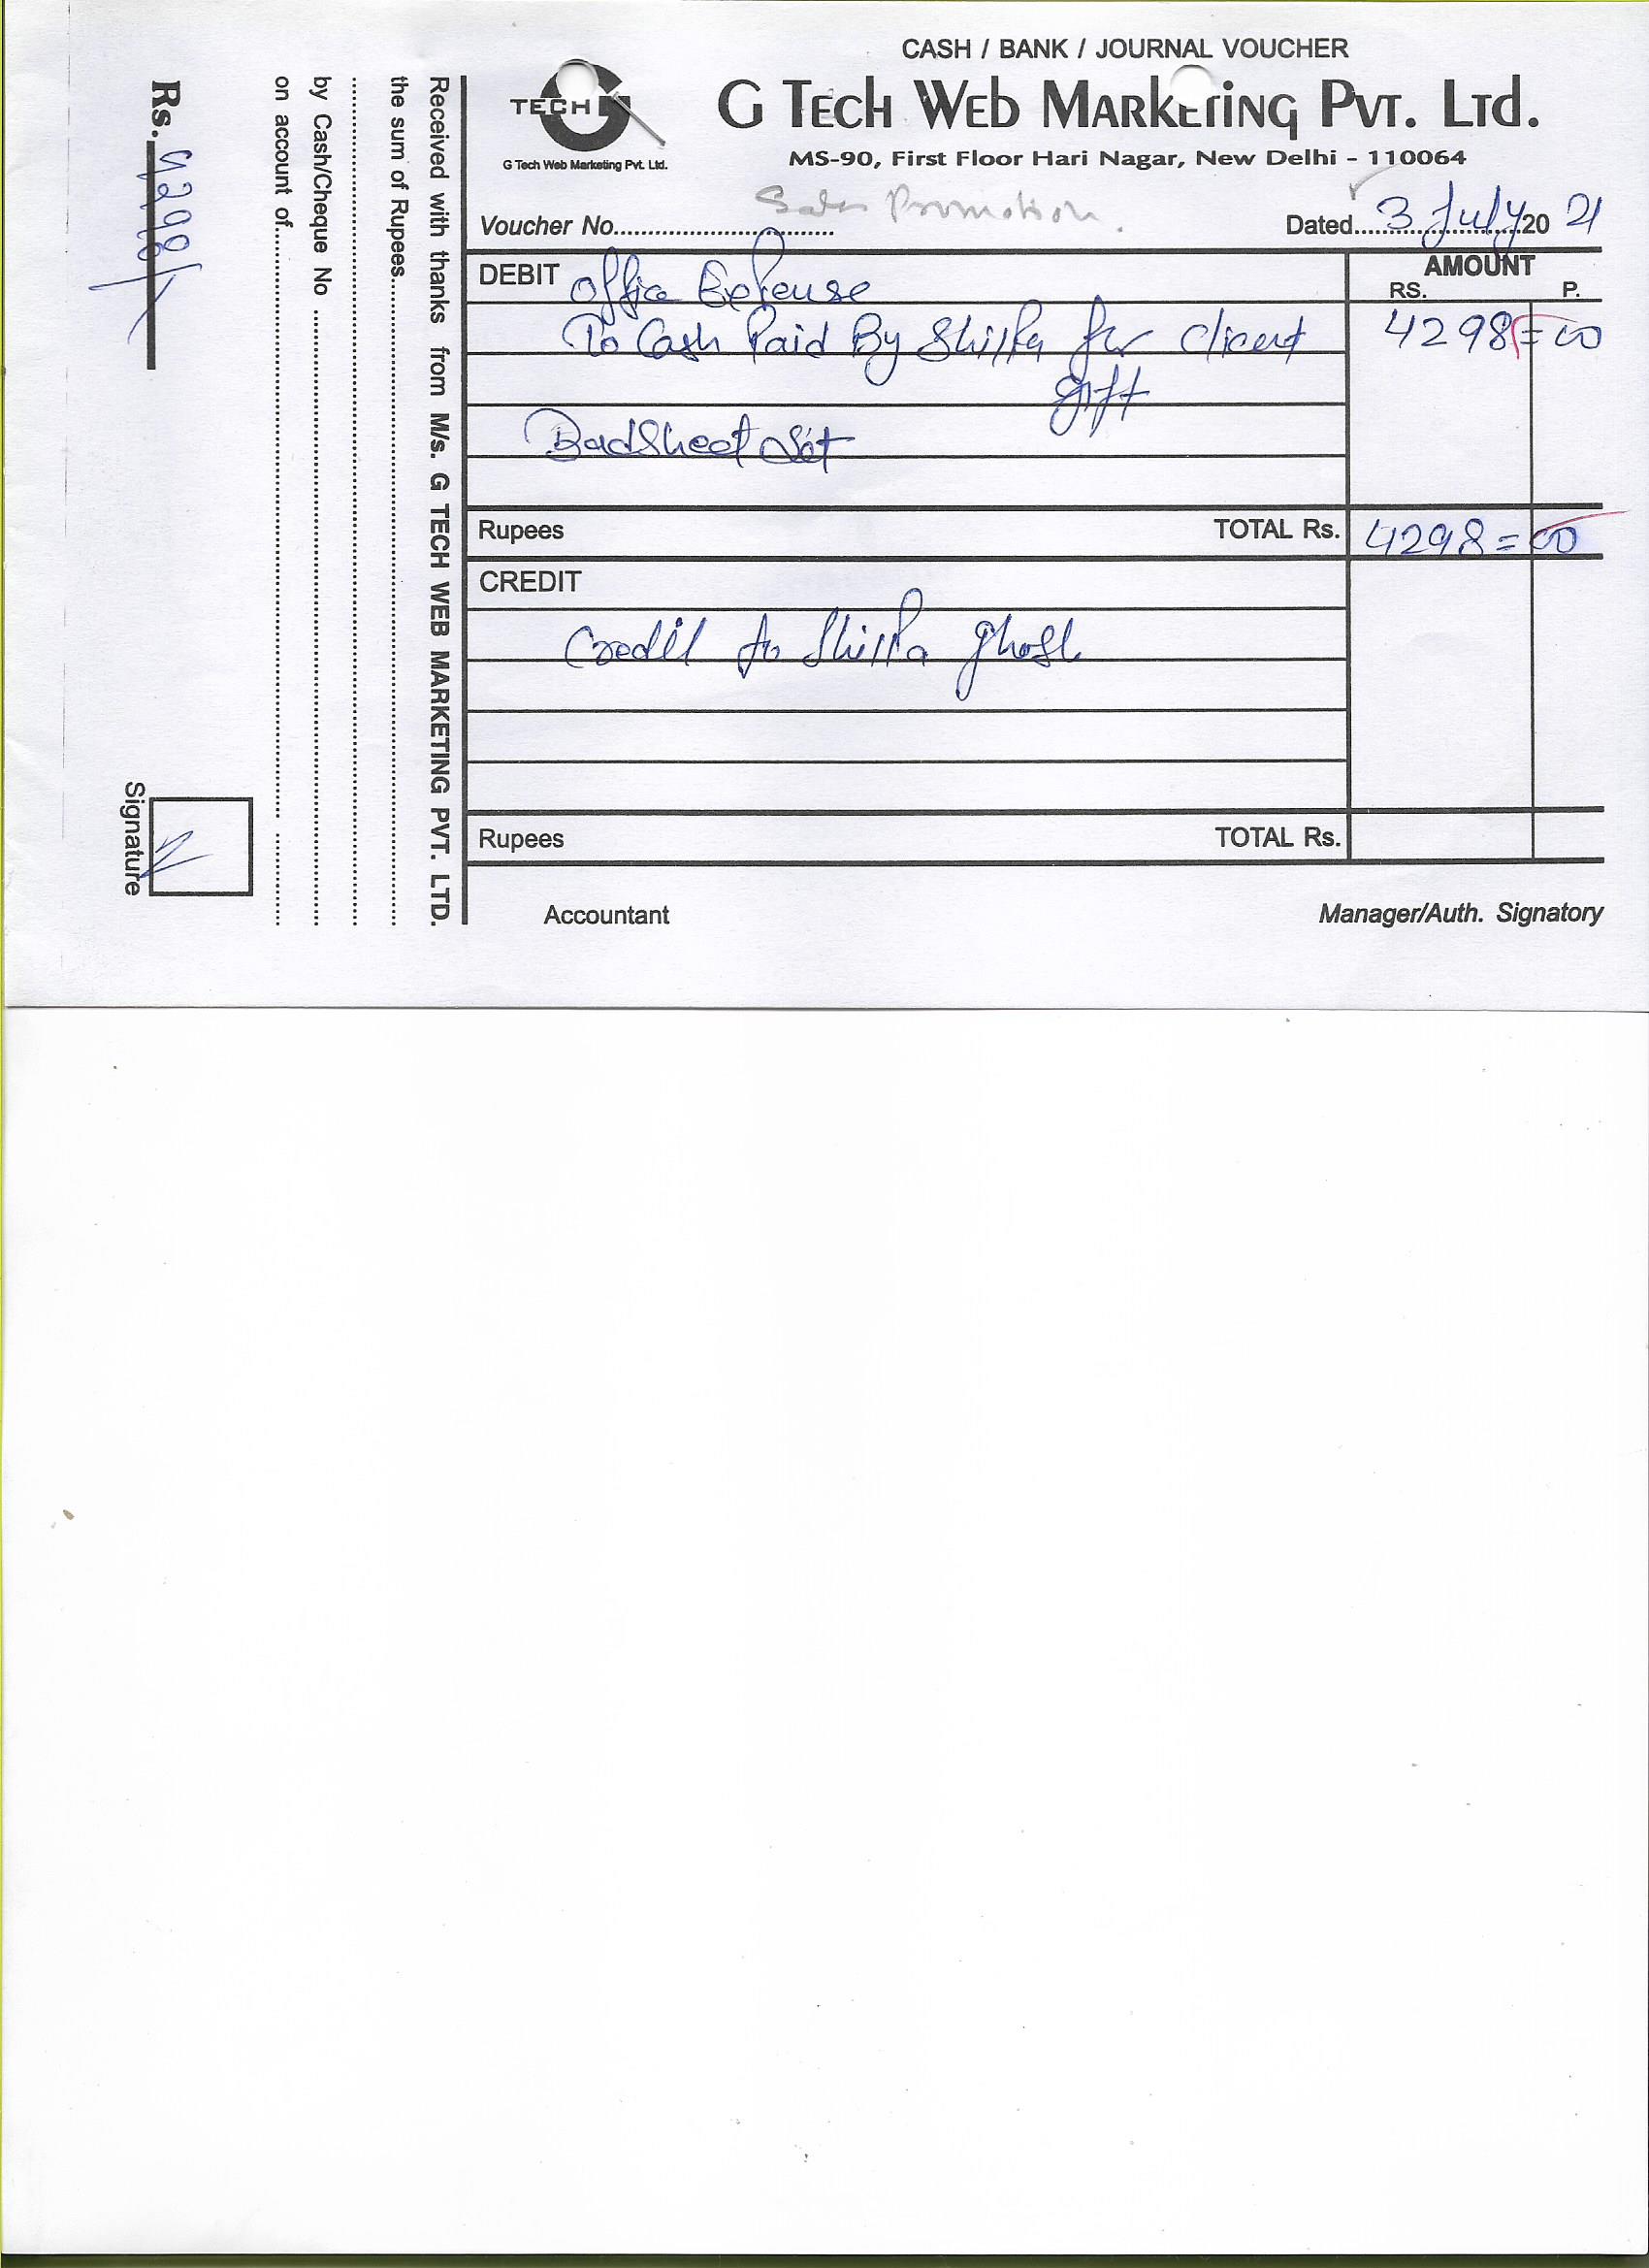 CASH / BANK / JOURNAL VOUCHER
TECH G
G Tech Web Marketing Pvt. Ltd.
G Tech Web Marketing Pvt. Ltd.
MS-90, First Floor Hari Nagar, New Delhi - 110064
Sales Promotion
Voucher No..............................
Dated 3 July 20 21
DEBIT Office Expense
AMOUNT
RS. P.
To Cash Paid By Shilpa for client 4298=00
gift
BadSheet Set
Rupees TOTAL Rs. 4298=00
CREDIT
Credit to Shilpa Ghosh
Rupees TOTAL Rs.
Accountant Manager/Auth. Signatory
Received with thanks from M/s. G TECH WEB MARKETING PVT. LTD.
the sum of Rupees
by Cash/Cheque No
on account of
Rs. 4298/-
Signature